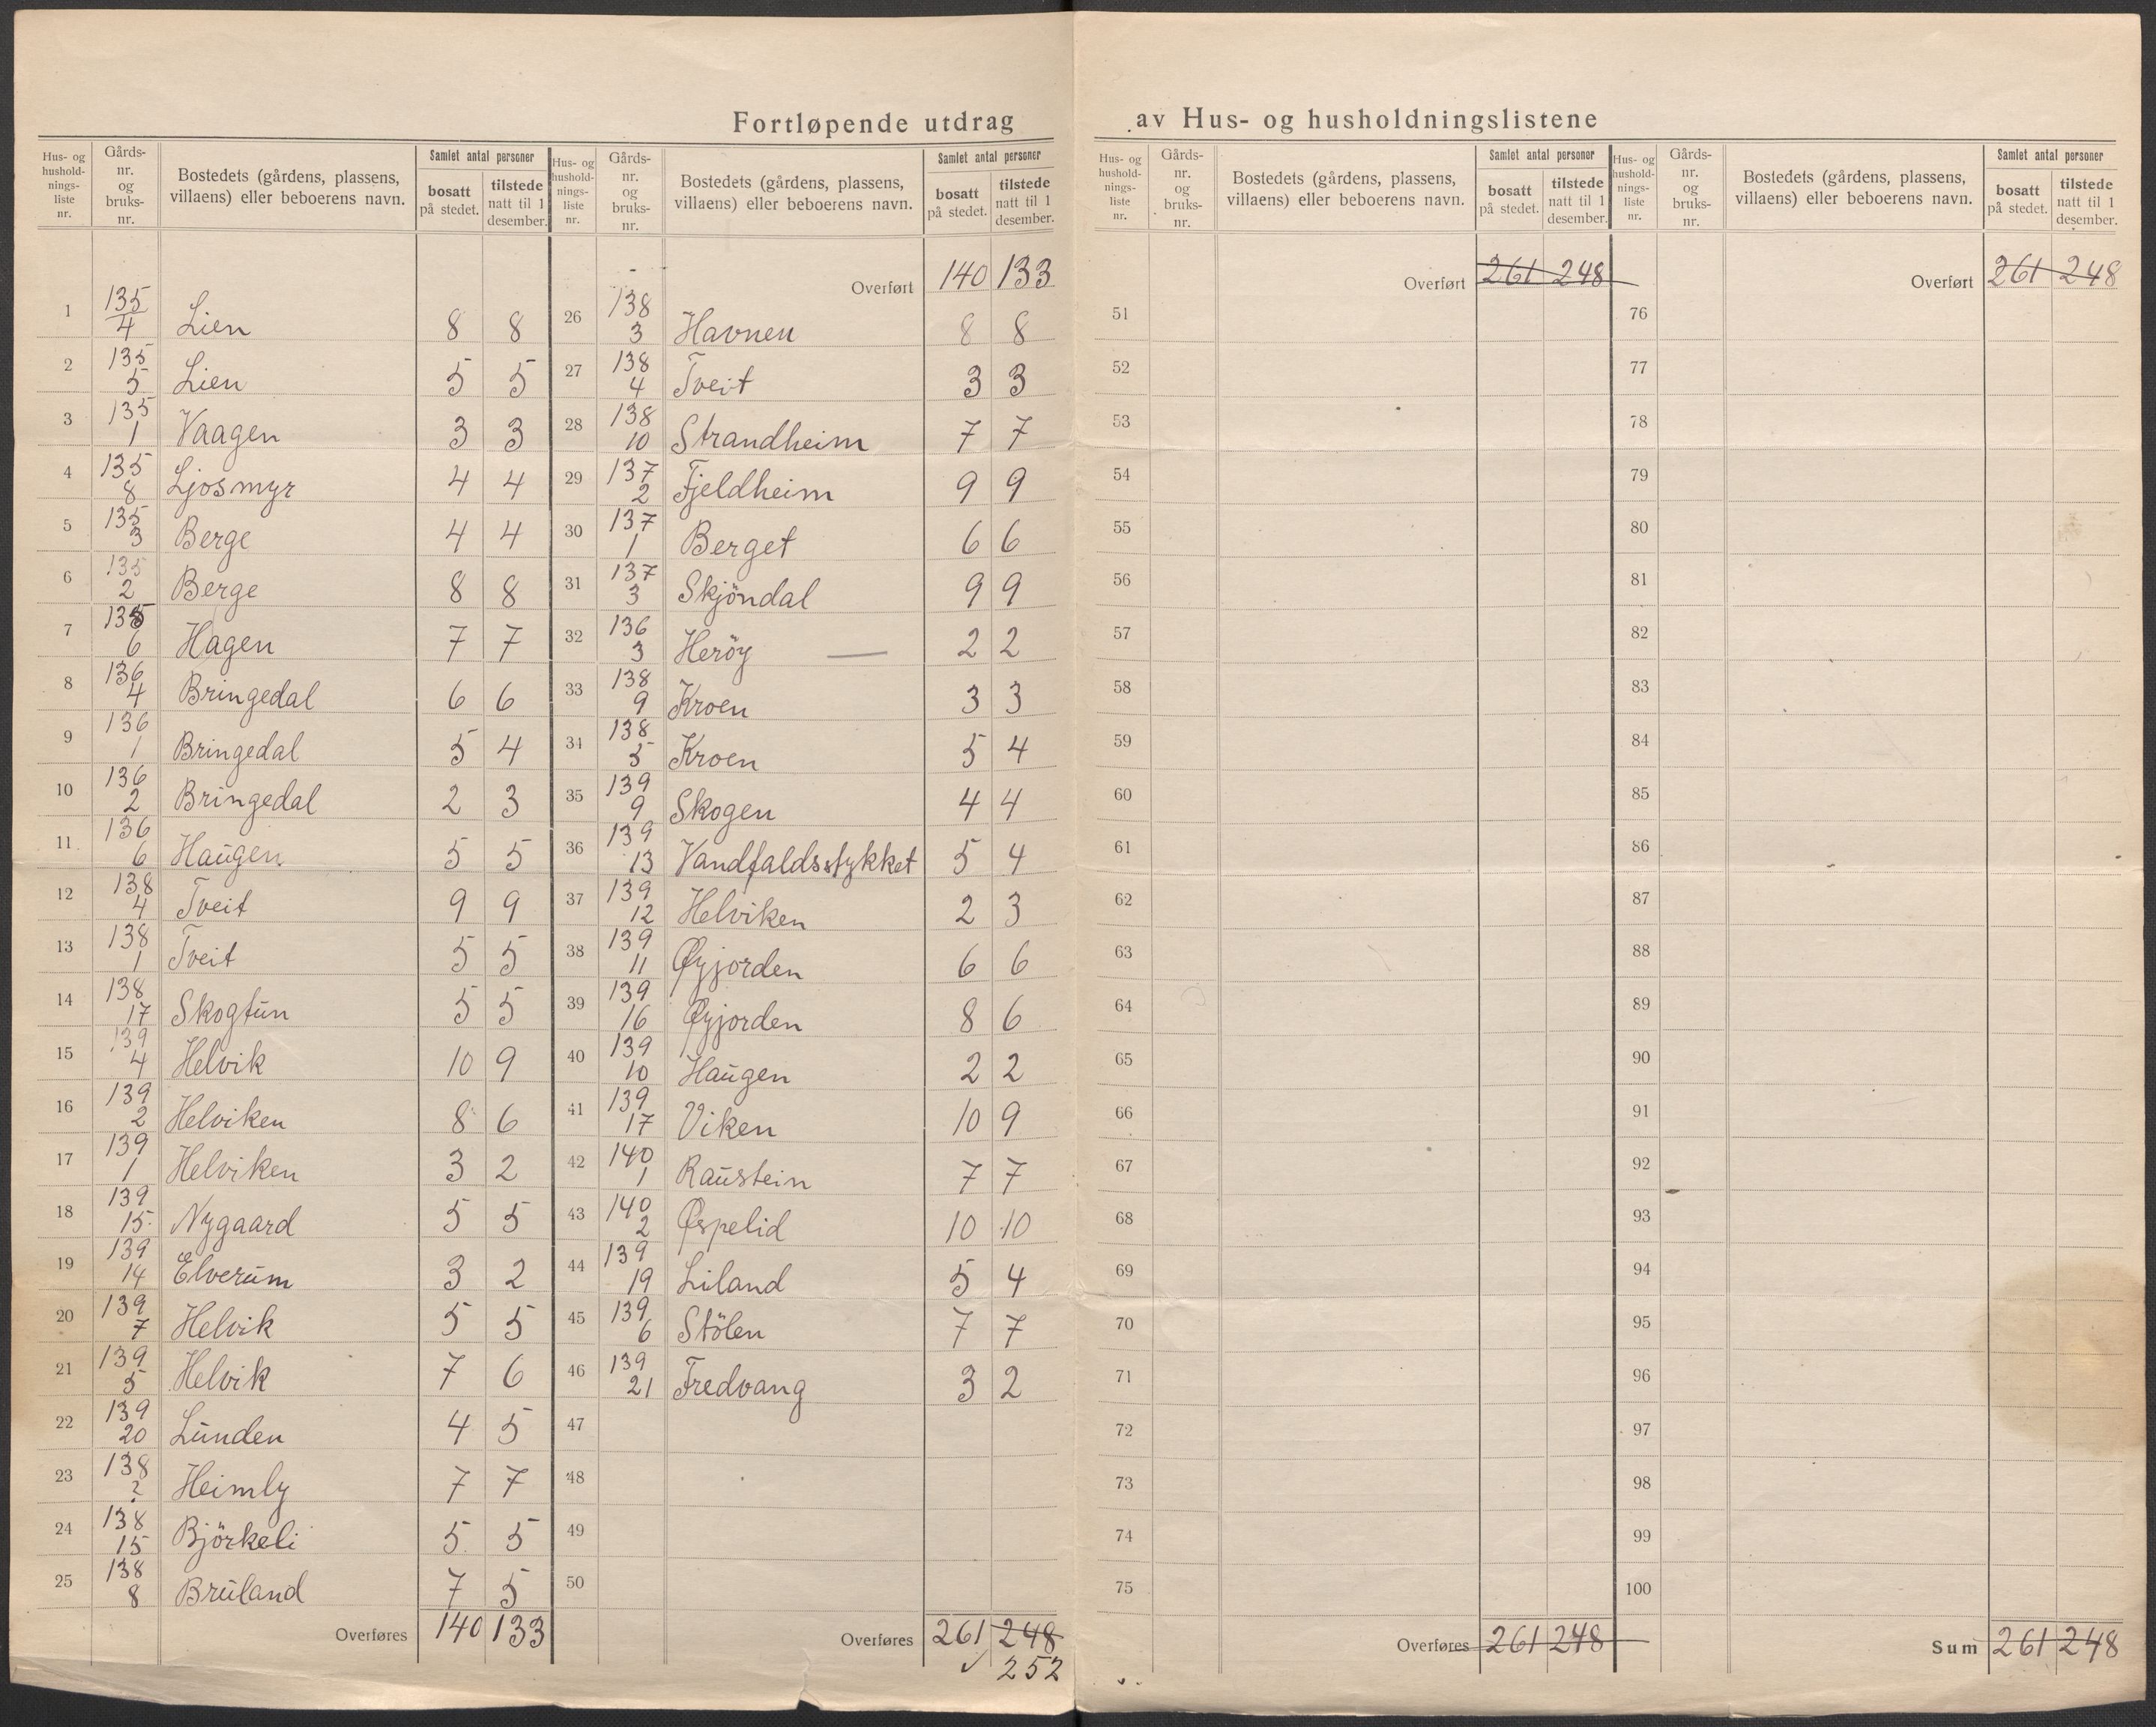 Fortløpende utdrag av Hus- og husholdningslistene
Hus- og hushold-nings-liste nr. | Gårds-nr. og bruks-nr. | Bostedets (gårdens, plassens, villaens) eller beboerens navn. | Samlet antal personer | bosatt på stedet. | tilstede natt til 1 desember.
1 135/4 Lien 8 8
2 135 5 Lien 5 5
3 135 1 Vaagen 3 3
4 135 8 Ljosmyr 4 4
5 135 3 Berge 4 4
6 135 2 Berge 8 8
7 135 6 Hagen 7 7
8 136 4 Bringedal 6 6
9 136 1 Bringedal 5 4
10 136 2 Bringedal 2 3
11 136 6 Haugen 5 5
12 138 4 Tveit 9 9
13 138 1 Tveit 5 5
14 138 17 Skogtun 5 5
15 139 4 Helvik 10 9
16 139 2 Helviken 8 6
17 139 1 Helviken 3 2
18 139 15 Nygaard 5 5
19 139 14 Elverum 3 2
20 139 7 Helvik 5 5
21 139 5 Helvik 7 6
22 139 20 Lunden 4 5
23 138 ? Heimly 7 7
24 138 15 Björkeli 5 5
25 138 8 Bruland 7 5
Overføres 140 133
Hus- og hushold-nings-liste nr. | Gårds-nr. og bruks-nr. | Bostedets (gårdens, plassens, villaens) eller beboerens navn. | Samlet antal personer | bosatt på stedet. | tilstede natt til 1 desember.
Overført 140 133
26 138 3 Havnen 8 8
27 138 4 Tveit 3 3
28 138 10 Strandheim 7 7
29 137 2 Fjeldheim 9 9
30 137 1 Berget 6 6
31 137 3 Skjöndal 9 9
32 136 3 Heröy — 2 2
33 138 9 Kroen 3 3
34 138 5 Kroen 5 4
35 139 9 Skogen 4 4
36 139 13 Vandfaldsstykket 5 4
37 139 12 Helviken 2 3
38 139 11 Øyjorden 6 6
39 139 16 Øyjorden 8 6
40 139 10 Haugen 2 2
41 139 17 Viken 10 9
42 140 1 Raustein 7 7
43 140 2 Øspelid 10 10
44 139 19 Liland 5 4
45 139 6 Stölen 7 7
46 139 21 Fredvang 3 2
47
48
49
50
Overføres 261 248
✓ 252
Hus- og hushold-nings-liste nr. | Gårds-nr. og bruks-nr. | Bostedets (gårdens, plassens, villaens) eller beboerens navn. | Samlet antal personer | bosatt på stedet. | tilstede natt til 1 desember.
Overført 261 248
51
52
53
54
55
56
57
58
59
60
61
62
63
64
65
66
67
68
69
70
71
72
73
74
75
Overføres 261 248
Hus- og hushold-nings-liste nr. | Gårds-nr. og bruks-nr. | Bostedets (gårdens, plassens, villaens) eller beboerens navn. | Samlet antal personer | bosatt på stedet. | tilstede natt til 1 desember.
Overført 261 248
76
77
78
79
80
81
82
83
84
85
86
87
88
89
90
91
92
93
94
95
96
97
98
99
100
Sum 261 248